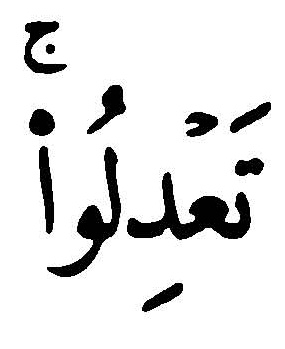 تَعْدِلُوا۟ۚ